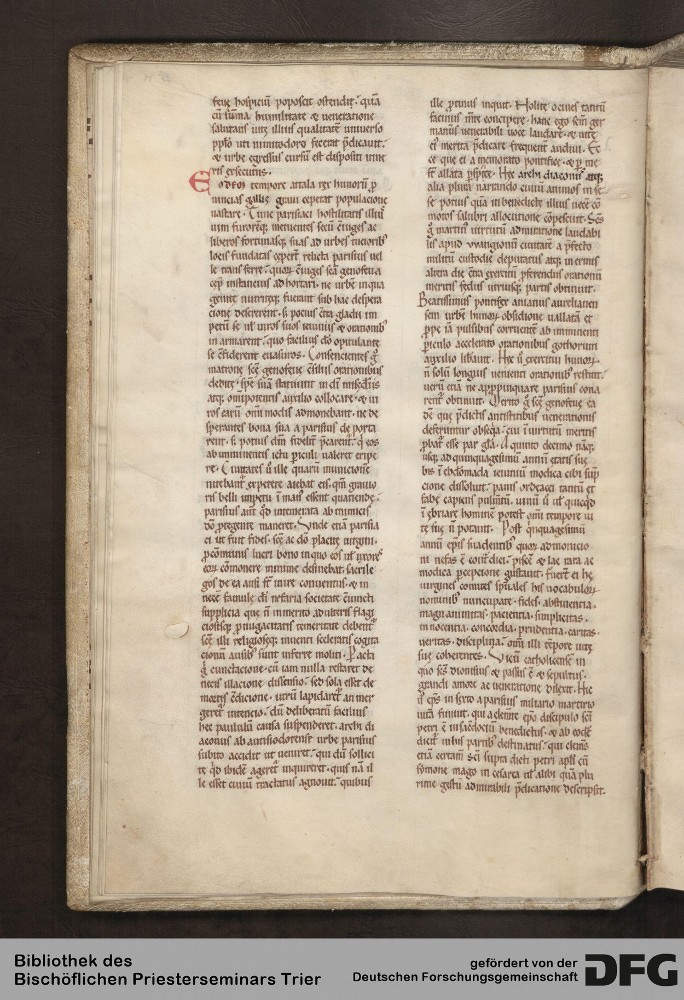 feve hospiciū poposcit ostendit. quā
cū sūma humilitate & ueneratione
salutans uite illius qualitatē uniuerso
pplo uti nunitodore fecerat p̄dicauit.
& urbe egressus cursū est dispositi itine
ris exsecutus.
Eodem tempore attala rex hunorū p
uincias gallie graui ceperat populatione
uastare. Tunc parisiaci hostilitatis illiꝰ
uim furorēq; metuentes secū cōiuges ac
liberos fortunasq; suas ad urbes tucioribꝰ
locis fundatas ceperāt relicta parisius uel
le transferre. quoꝝ cōiuges scā genofeua
cepit instancius ad hortari. ne urbē in qua
genite nutriteq; fuerant sub hac despera
cione desererent. s; pocius cōtra gladii im
petū se uł uiros suos ieiuniis & orationibꝰ
in armarent. quo facilius dō opitulante
se cōfiderent euasuros. Consencientes g̊
matrone scē genofeue cōsiliis orationibus
dedite. spē suā statuunt in dī misecdiis
atq; omnipotentis auxilio collocare. & ui
ros earū omī modis admonebant. ne de
sperantes bona sua a parisius de porta
rent. s; potius dm̄ fideliū p̄carentˀ. q̇ eos
ab imminentis ictu p̄iculi ualeret eripe
re. Ciuitates ū ille quarū municione
nitebantˀ expetere aiebat eis. qm̄ grauio
ris belli impetu ī maiꝰ essent quatiende.
parisius aut̄ q̇d intemerata ab inimicis
dō p̄tegente maneret. Unde etiā parisia
ci ut fuit fides. scē ac dō placite uirgini.
p cōmunis lucri bono in quo eos uł uxores
eoꝝ cōmonere minime desinebat. sacrile
gos de ea ausi sūt inire conuentus. & in
necē famule dī nefaria societate cūuncti
supplicia que nō inmerito adulteris flagi
ciosisq; p̄ iugacitatis temeritate debentˀ
scē illi religioseq; inuenti sceleratis cogita
cionū ausibꝰ sunt inferre moliti. Pacta
g̊ cunctacione. cū iam nulla restaret de
necis illacione dissensio. sed sola esset de
mortis cōdicione. utrū lapidaretˀ an mer
geretˀ intencio. dū deliberatū facilius
hec paululū causa suspenderet. archi di
aconus ab autisiodorensi urbe parisius
subito accidit ut ueniret. qui dū sollici
te q̇d ibidē ageretˀ inquireret. quis nā il
le esset ciuiū tractatus agnouit. quibus
ille protinus inquit. Nolite o ciues tantū
facinus mēte concipere. hanc ego sem̄ ger
manū uenerabili uoce laudare. & uite
eī merita p̄dicare frequent̄ audiui. Ec
ce que ei a memorato pontifice. & p me
sūt allata p̄spicite. Hec archi diaconꝰ atq;
alia plura narrando ciuiū animos in se
se potius quā in benedicte illius necē cō
motos salubri allocutione cōpescuit. Scs̄
g̊ martinꝰ uirtutū admiratione laudabi
lis apud uuangionū ciuitatē a p̄fecto
militū custodie deputatus atq; inermis
altera die cōtra exercitū p̄ferendus orationū
meritis fedus utriusq; partis obtinuit.
Beatissimus pontifex anianus aurelianen
sem urbē hunoꝝ obsidione uallatā et
ppe iā pulsibus corruentē ab imminenti
p̄iculo accelerato orationibus gothorum
auxilio libauit. Hec ū exercitui hunoꝝ.
nō solū longius uenient̄ orationibꝰ restitit.
uerū etiā ne appropinquare parisius cona
rentˀ obtinuit. Merito g̊ scē genofeue ea
dē que p̄dictis antistitibus uenerationis
deferuntur obseq̄a. cui ī uirtutū meritis
p̄batˀ esse par gła. A quinto decimo naq;
usq; ad quinquagesimū annū etatis sue
bis ī ebdomada ieiuniū modica cibi sūp
cione dissoluit. panis ordeacei tantū et
fabe capiens pulmtū. uinū ū uł quicq̇d
ī ebriare hominē potest om̄i tempore ui
te sue nō potauit. Post q̄nquagesimū
annū ep̄is suadentibꝰ quoꝝ admonicio
ni nefas ē cont̄dici. piscē & lac rara ac
modica p̄cepcione gustauit. Fuerūt ei he
uirgines comites spūales his uocabuloꝝ
nominibꝰ nuncupate. fides. abstinencia.
magnanimitas. paciencia. simplicitas.
innocencia. concordia. prudentia. caritas.
ueritas. disciplina. om̄i illi tēpore uite
sue coherentes. Vicū catholicensē in
quo scs̄ dionisius & passus ē & sepultus.
grandi amore ac ueneratione dilexit. Hic
ū ep̄s in sexto a parisius miliario martirio
uitā finiuit. qui a clemte ep̄o discipulo scī
petri ē in sacdocii benedictus. & ab eodē
dicitˀ istis partibꝰ destinatus. qui clemēs
etiā certam scī supra dicti petri apłi cū
symone mago in cesarea uł alibi quā plu
rime gestū admirabili p̄dicatione descripsit.
Bibliothek des
Bischöflichen Priesterseminars Trier
gefördert von der
Deutschen Forschungsgemeinschaft
DFG